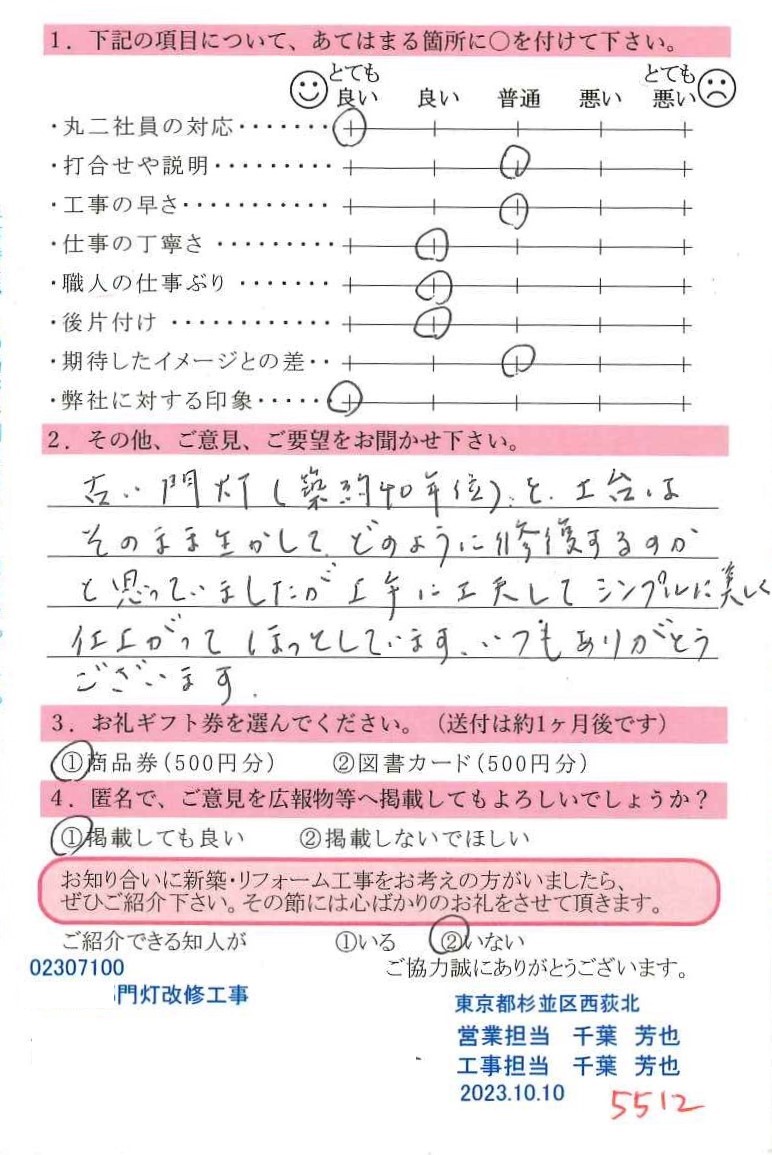 1. 下記の項目について、あてはまる箇所に○を付けて下さい。
とても良い 良い 普通 悪い とても悪い
・丸二社員の対応・・・・・・・
・打合せや説明・・・・・・・・・
・工事の早さ・・・・・・・・・・・
・仕事の丁寧さ ・・・・・・・・・
・職人の仕事ぶり ・・・・・・・
・後片付け ・・・・・・・・・・・・
・期待したイメージとの差・・
・弊社に対する印象・・・・・・
2. その他、ご意見、ご要望をお聞かせ下さい。
古い門灯(築約40年位)を、土台は
そのまま生かして、どのように修復するのか
と思っていましたが上手に工夫してシンプルに美しく
仕上がってほっとしています、いつもありがとう
ございます。
3. お礼ギフト券を選んでください。(送付は約1ヶ月後です)
①商品券(500円分) ②図書カード(500円分)
4. 匿名で、ご意見を広報物等へ掲載してもよろしいでしょうか?
①掲載しても良い ②掲載しないでほしい
お知り合いに新築・リフォーム工事をお考えの方がいましたら、
ぜひご紹介下さい。その節には心ばかりのお礼をさせて頂きます。
ご紹介できる知人が ①いる ②いない
ご協力誠にありがとうございます。
02307100
門灯改修工事
東京都杉並区西荻北
営業担当 千葉 芳也
工事担当 千葉 芳也
2023.10.10
5512